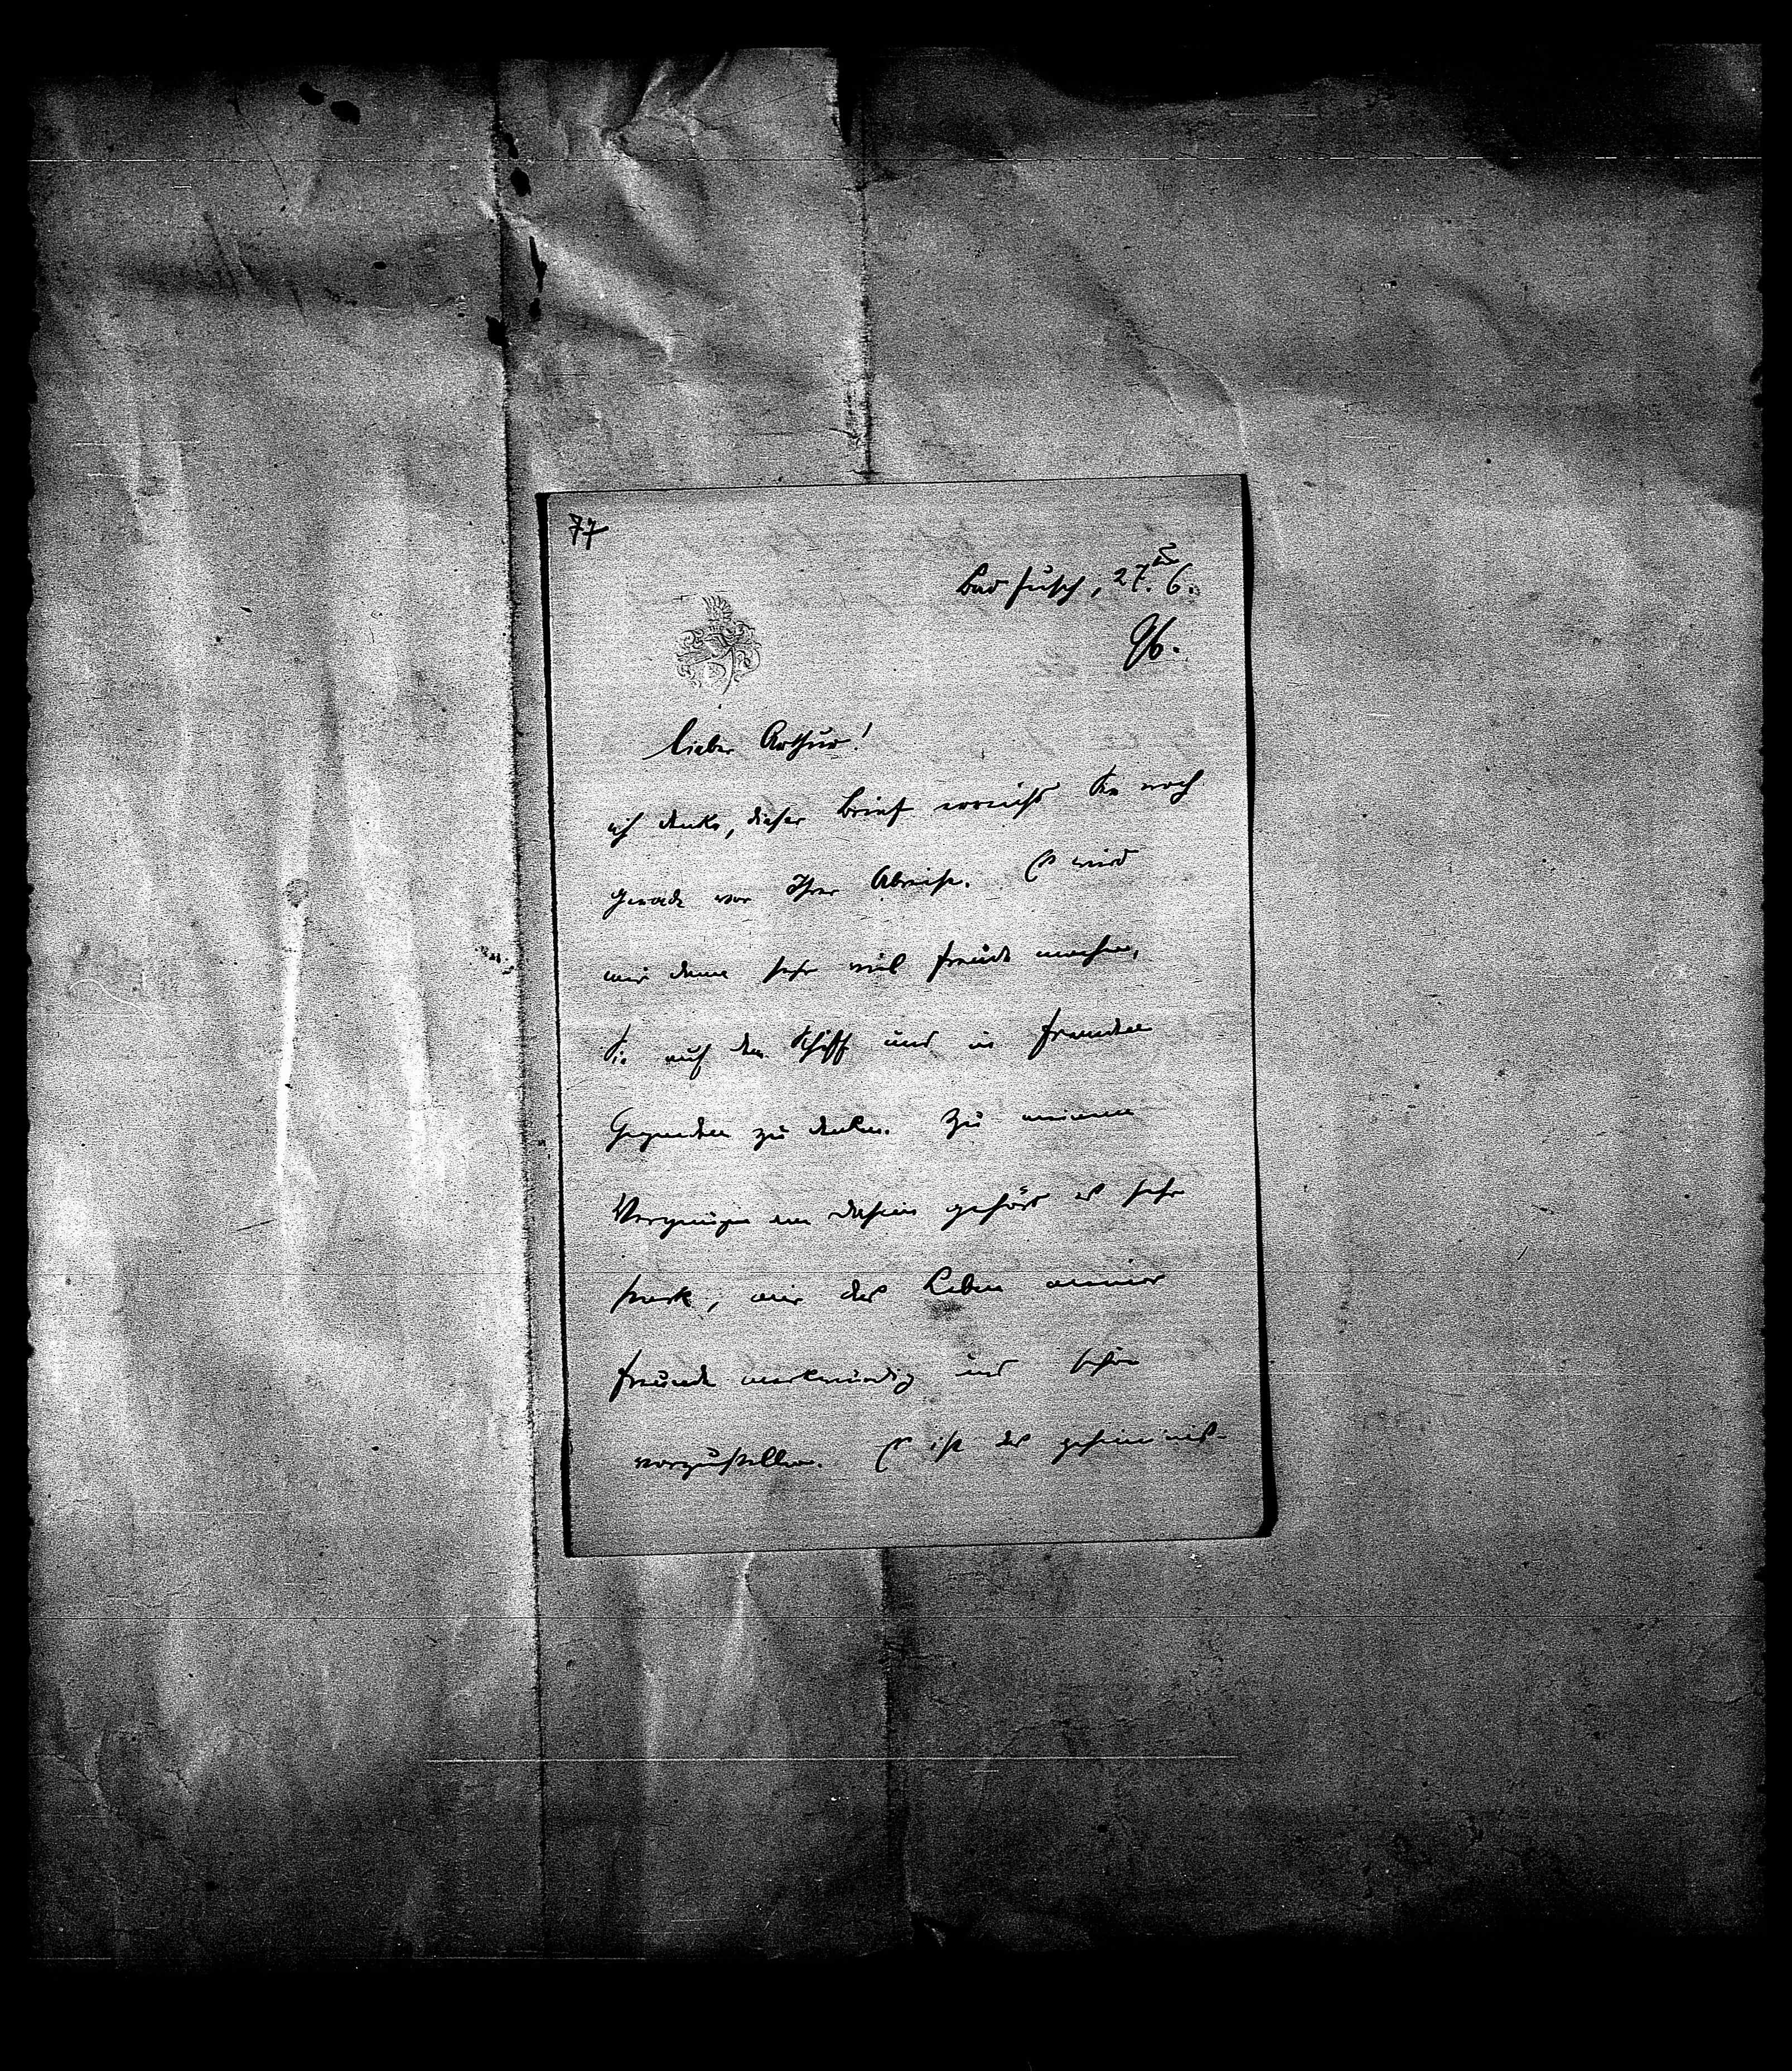 77
Bad Fusch, 27. 6.
96.
lieber Arthur!
ich denke, dieser Brief erreicht Sie noch
gerade vor Ihrer Abreise. Es wird
mir dann sehr viel Freude machen,
Sie auf dem Schiff und in fremden
Gegenden zu denken. Zu meinem
Vergnügen am Dasein gehört es sehr
stark, mir das Leben meiner
Freunde merkwürdig und schön
vorzustellen. Es ist das geheimnis-